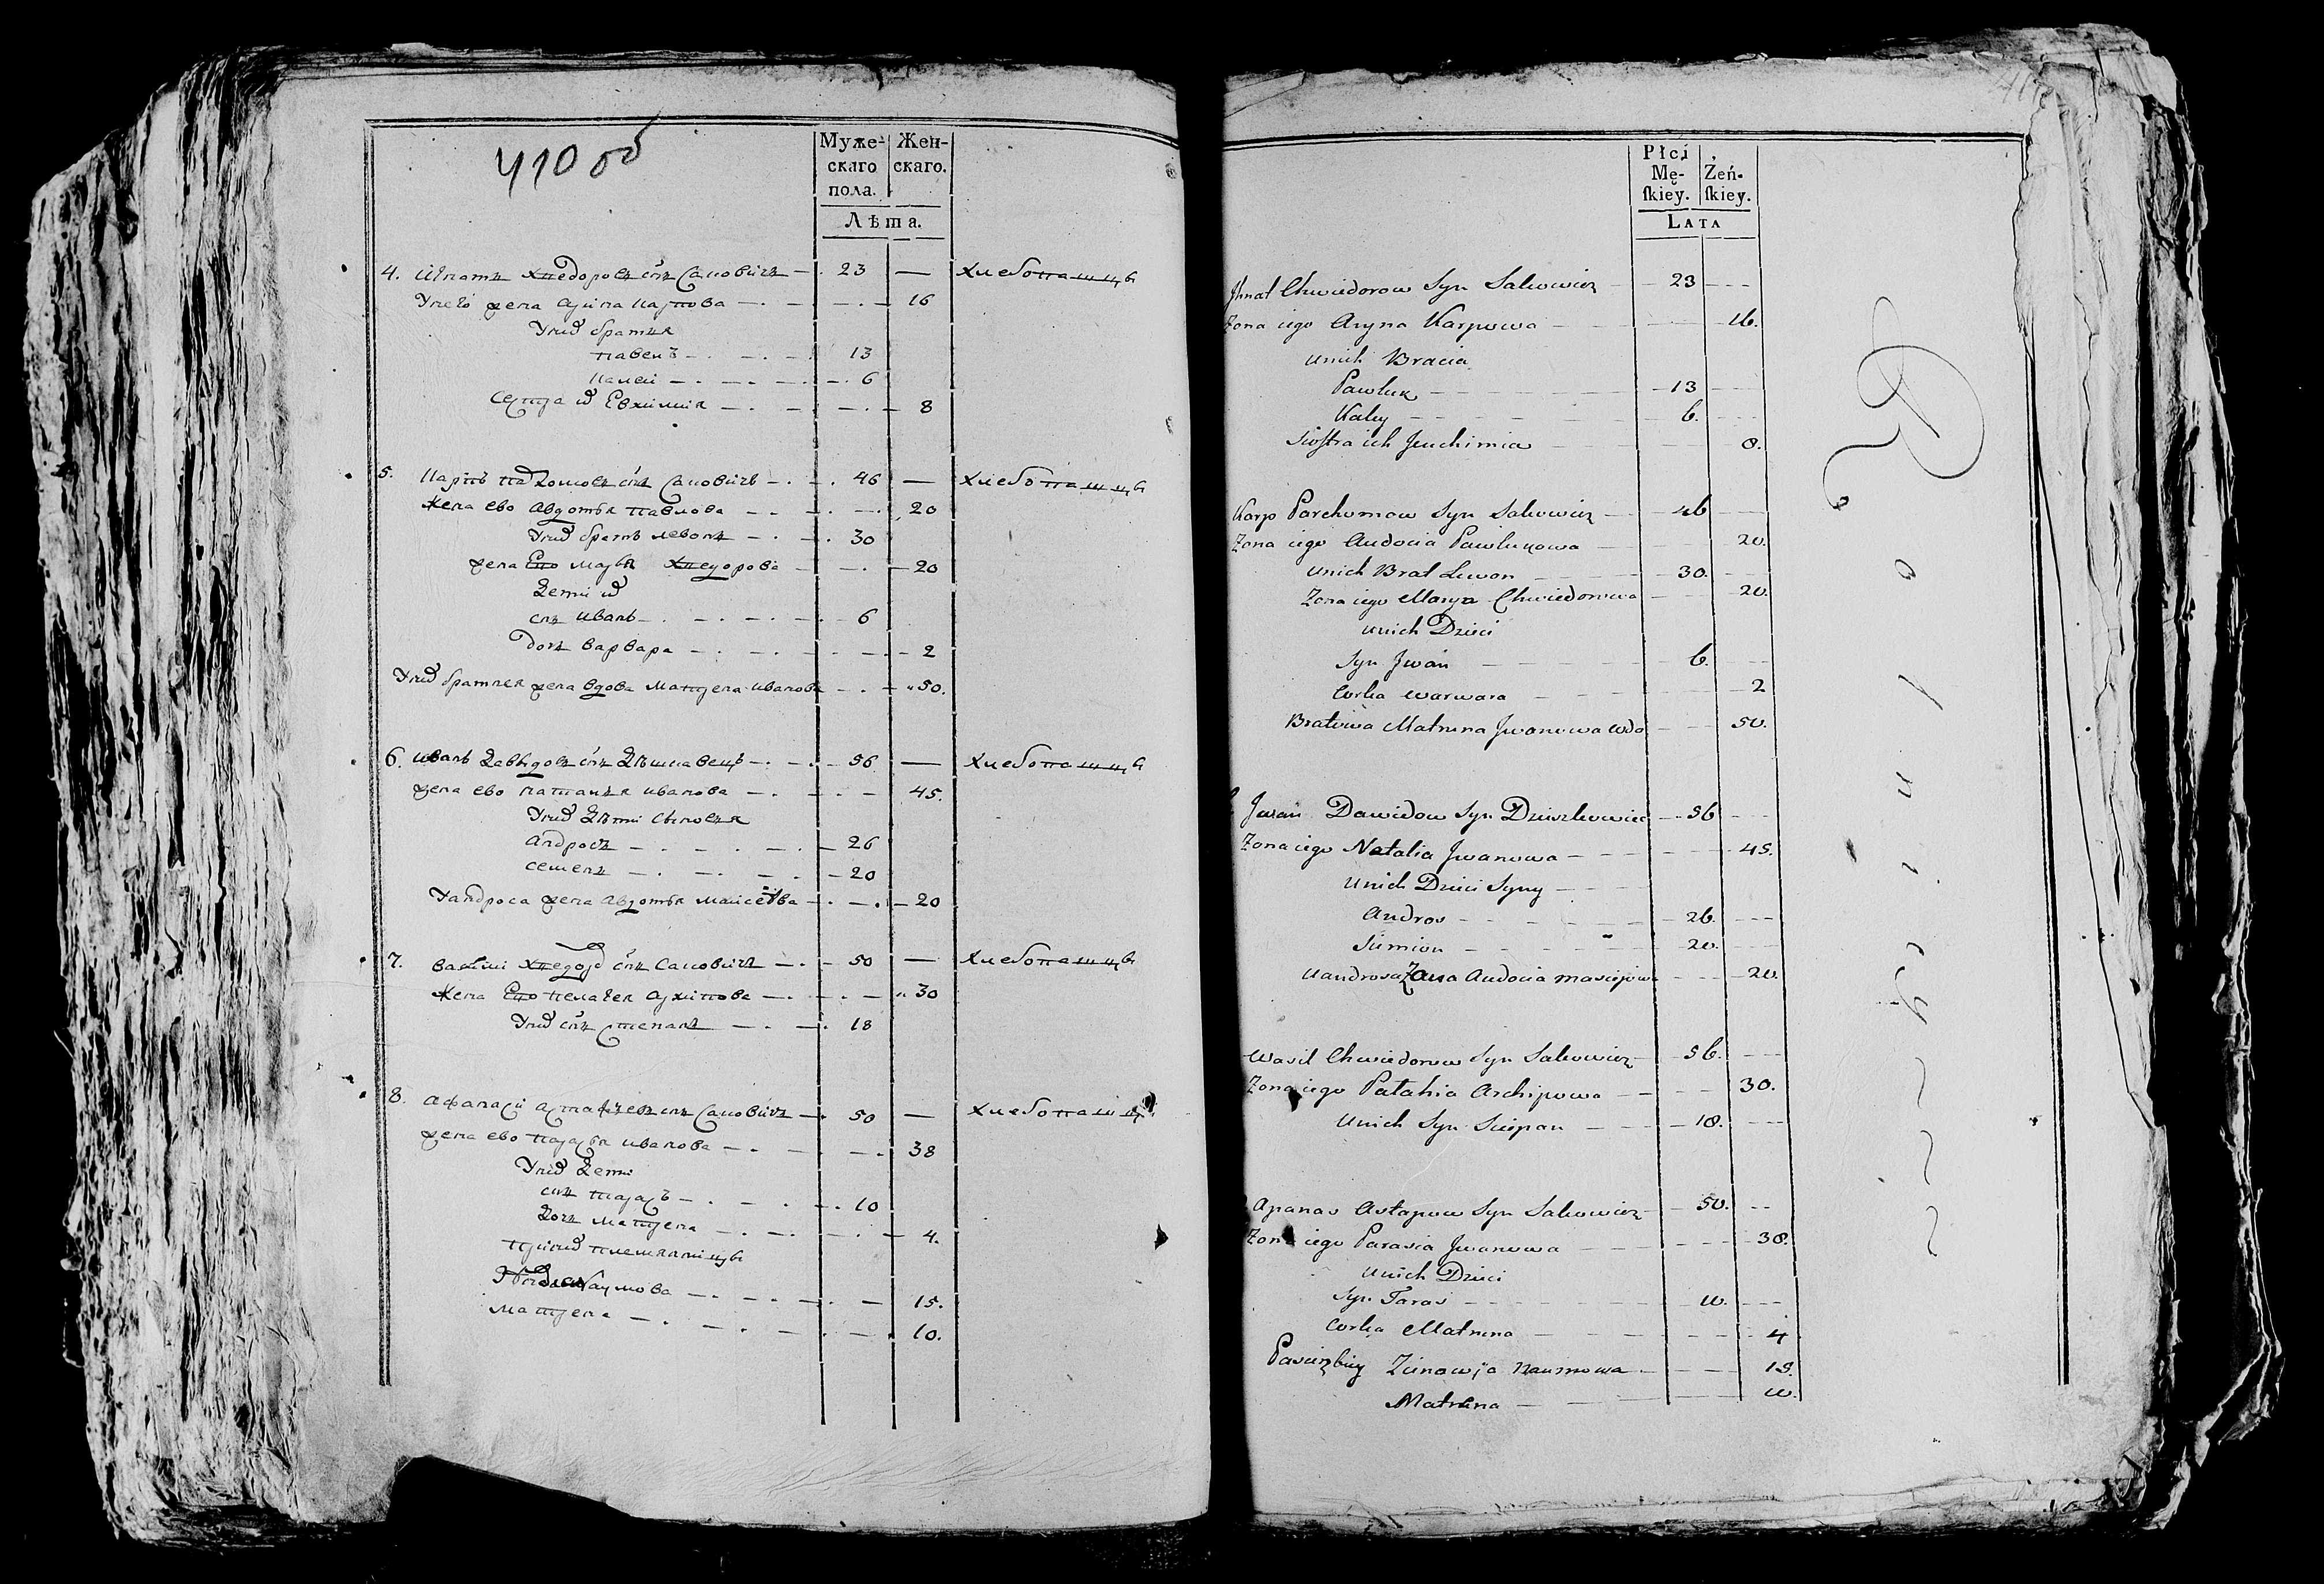 410 об
Муже- Жен-
скаго скаго.
пола.
Лѣта.
4. Игнатъ Хведоровъ снъ Саковичъ 23 — хлебопашцы
У него жена Арина Карпова 16
У них братья
Павелъ 13
Калей 6
Сестра их Евхимия 8
5. Карпъ Пархомовъ снъ Саковичъ 46 — хлебопашцы
Жена ево Авдотья Павлова 20
У них братъ Левонъ 30
жена Ево Марья Хведорова 20
Дети их
снъ Иванъ 6
дочь Варвара 2
У них братнея жена вдова Матрена Иванова 50.
6. Иванъ Давыдовъ снъ Дѣшкавецъ 56 — хлебопашцы
жена ево Наталья Иванова 45.
У них Дѣти сыновья
Андросъ 26
Семенъ 20
У Андроса жена Авдотья Маисеева 20
7. Василі Хведор снъ Саковичъ 50 — хлебопашцы
Жена Ево Пелагея Архипова 30
У них снъ Степанъ 18
8. Афанасй Астафьевъ снъ Саковичъ 50 — хлебопашцы
жена ево Парасья Иванова 38
У них Дети
снъ Тарасъ 10
Дочь Матрена 4.
При них племянницы
Наумова 15.
Матрена 10.
Płci
Mę- Żeń-
ſkiey. ſkiey.
LATA
Jhnat Chwiedorow Syn Sakowicz 23
Zona iego Aryna Karpowa 16.
unich Bracia
Pawluk 13
Kaley 6.
Siostra ich Jeuchimia 8.
Karp Parchomow Syn Sakowicz 46
Zona iego Audocia Pawlukowa 20.
unich Brat Lewon 30.
Zona iego Marya Chwiedorowa 20.
unich Dzieci
Syn Jwan 6.
Corka Warwara 2
Bratowa Matruna Jwanowa Wdo 50.
Jwan Dawidow Syn Dzieszkowiec 56
Zona iego Natalia Jwanowa 45.
Unich Dzieci Syny
Andros 26.
Siemion 20.
Uandrosa Zona Audocia Masieiowa 20
Wasil Chwiedorow Syn Sakowicz 56.
Zona iego Palahia Archipowa 30.
Unich Syn Sciepan 18.
Apanas Astapow Syn Sakowicz 50.
Zona iego Parasia Jwanowa 38.
Unich Dzieci
Syn Taras 10.
Corka Matruna 4
Pasierzbicy Zienowja Naumowa 15.
Matruna 10.
Rolnicy